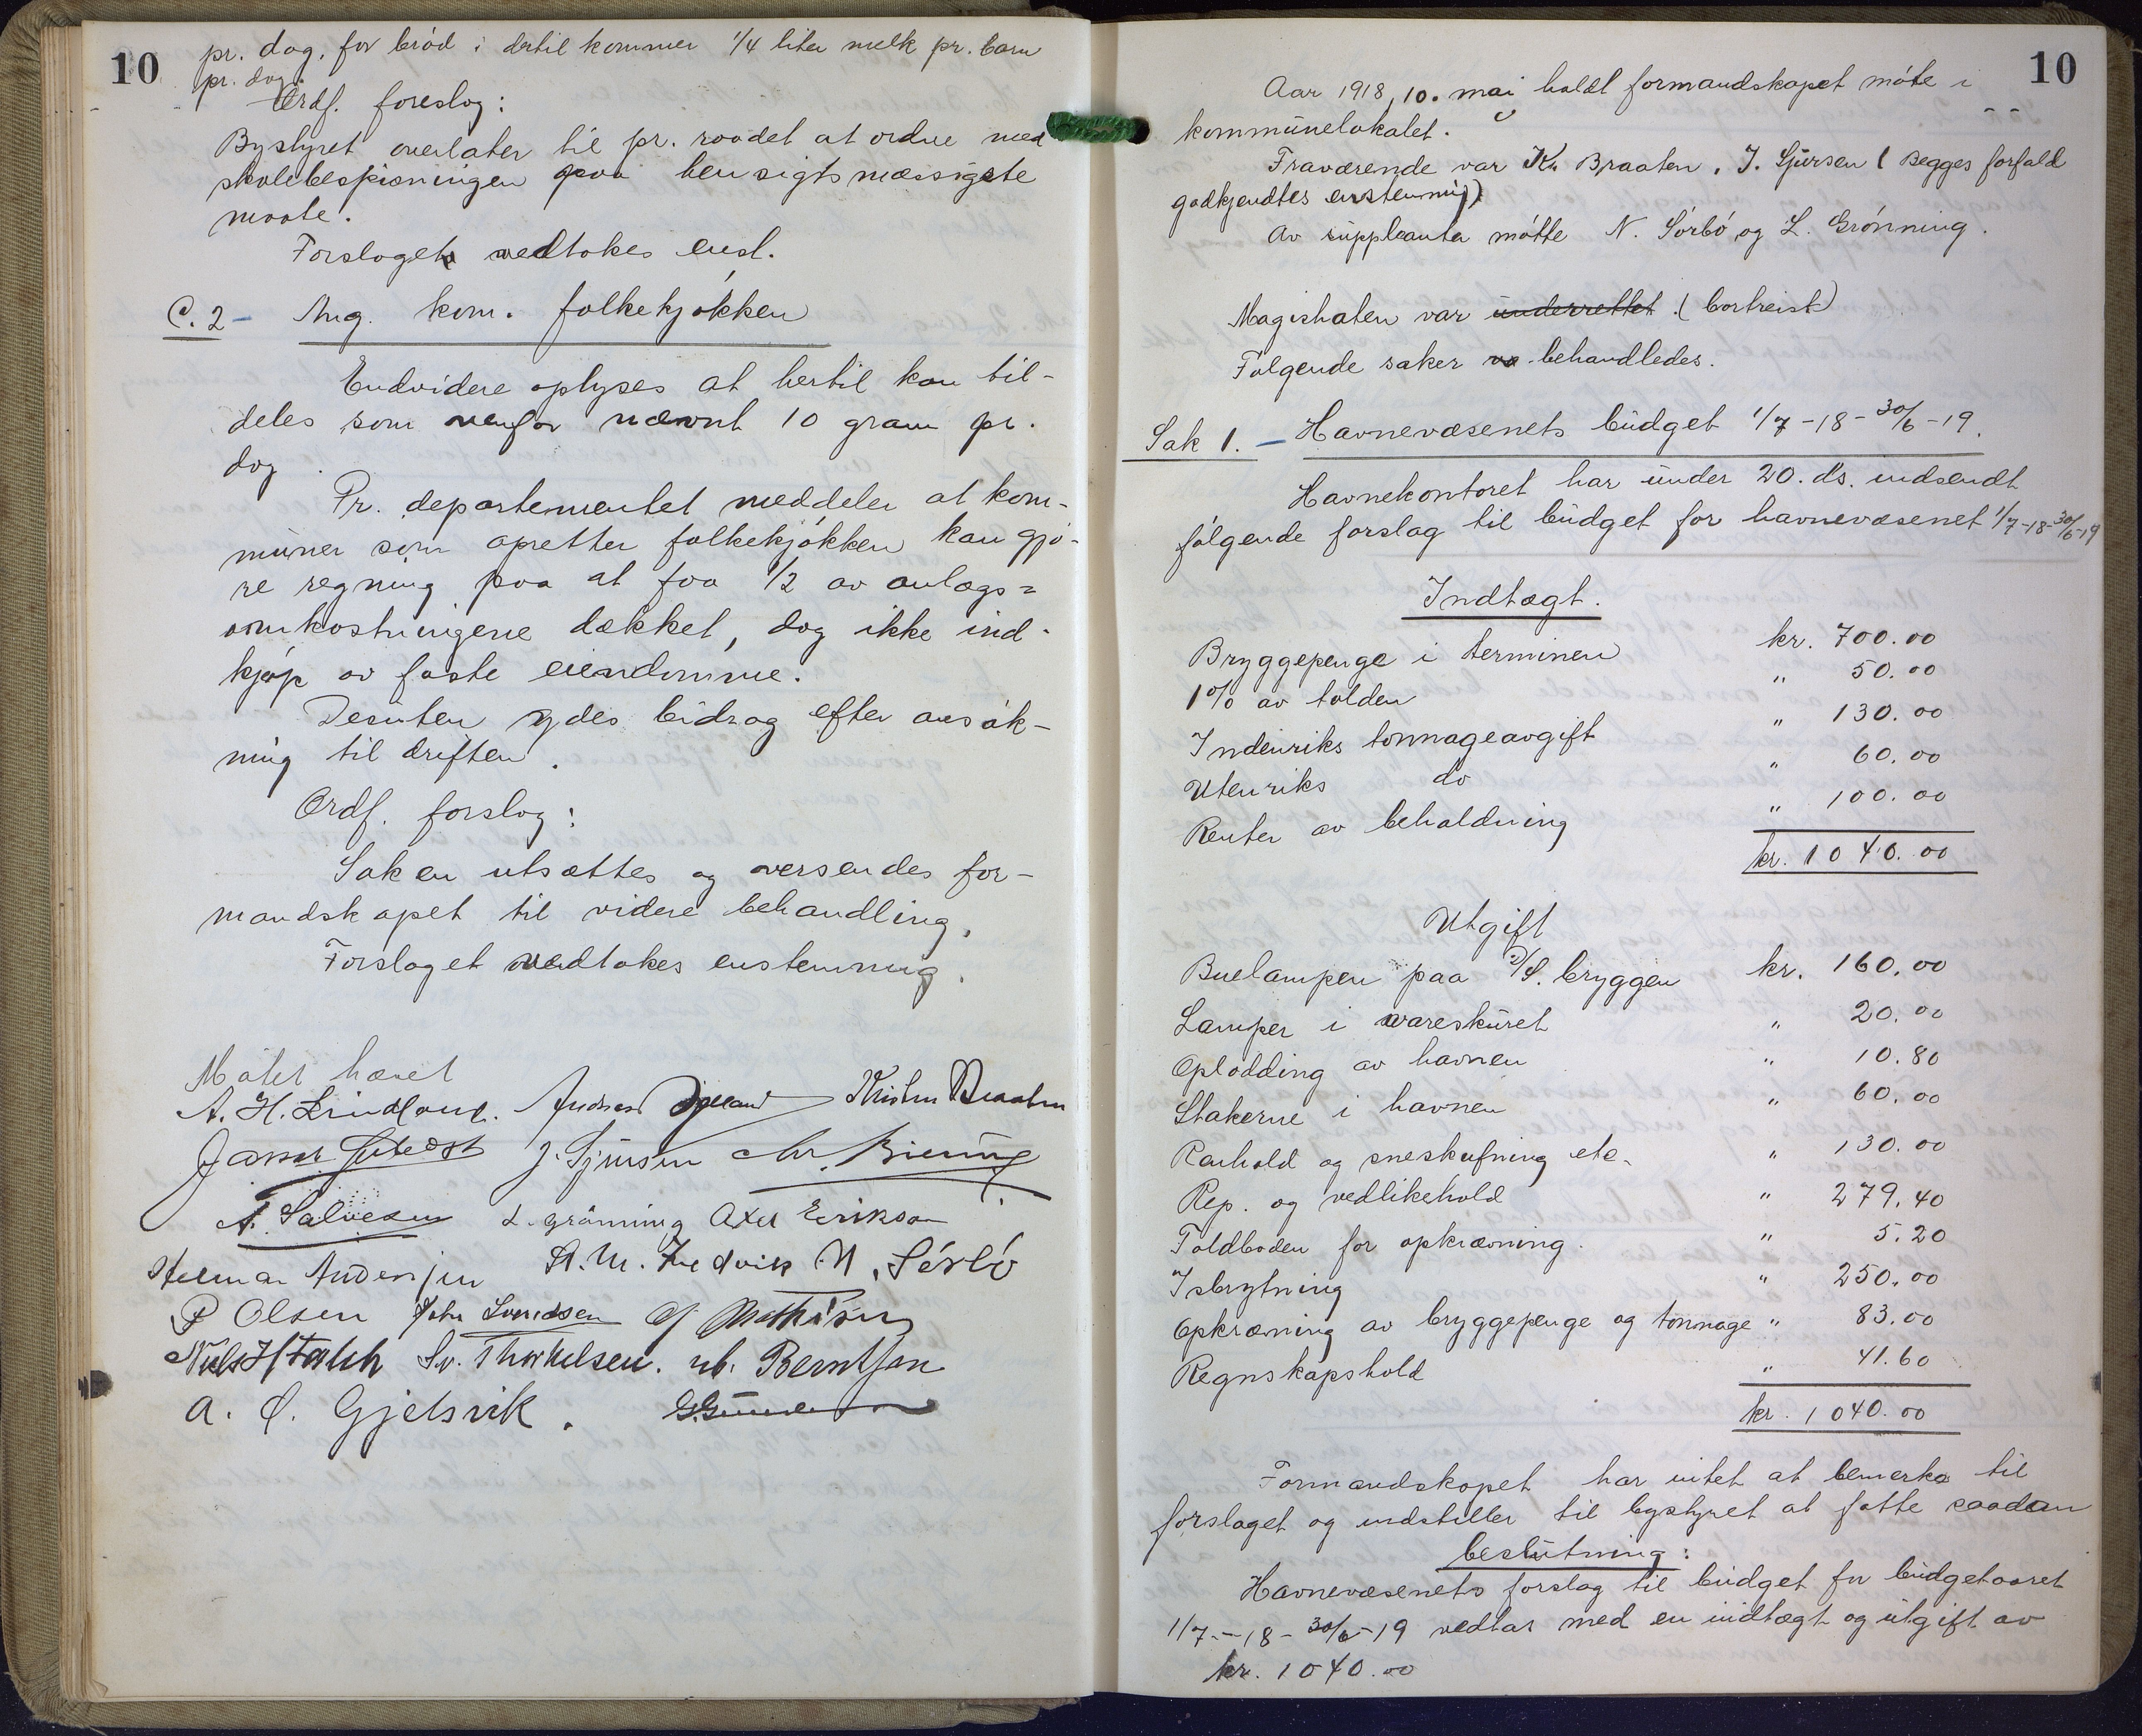 10
pr. dag, for bród i dertil kommer 1/4 liter melk pr. barn
pr. dag.
Ordf. foreslog:
Bystyret overlater til pr. raadet at ordne med
skolebespisningen paa hensigtsmæssigste
maate.
Forslaget vedtokes enst.
C. 2 - Ang. kom. folkekjókken
Endvidere oplyses at hertil kan til-
deles som ovenfor nævnt 10 gram pr.
dag.
Pr. departementet meddeler at kom-
muner som opretter folkekjókken kan gjó-
re regning paa at faa 1/2 av anlægs=
omkostningene dækket, dog ikke ind-
kjóp av faste eiendomme.
Desuten ydes bidrag efter ansók-
ning til driften.
Ordf. forslog:
Saken utsættes og oversendes for-
mandskapet til videre behandling.
Forslaget vedtokes enstemmig.
Mótet hævet
A. H. Lindland. Andreas Kristen Braaten
J. Sjursen Chr.
A. Salvesen L. Grónning Axel Erikson
Herman Andersen N. Sórbó
P Olsen John Svendsen Mathisen
Sv. Thorkelsen. Berntsen
A. O. Gjelsvik.
10
Aar 1918, 10. mai holdt formandskapet móte i
kommunelokalet.
Fraværende var Kr. Braaten, J. Sjursen (begges forfald
godkjendtes enstemmig)
Av suppleanter mótte N. Sórbó og L. Grónning.
Magistraten var underrettet. (bortreist)
Fólgende saker va behandledes.
Sak 1. - Havnevæsenets budget 1/7-18-30/6-19.
Havnekontoret har under 20. ds. indsendt
fólgende forslag til budget for havnevæsenet 1/7-18-30/6-19
Indtægt.
Bryggepenge i terminen kr. 700.00
1% av tolden " 50.00
Indenriks tonnageavgift " 130.00
Utenriks do " 60.00
Renter av beholdning " 100.00
kr. 1040.00
Utgift
Buelampen paa D/S. bryggen kr. 160.00
Lamper i vareskuret " 20.00
Oplodding av havnen " 10.80
Stakerne i havnen " 60.00
Renhold og sneskufning etc. " 130.00
Rep. og vedlikehold " 279.40
Toldboden for opkrævning. " 5.20
Isbrytning " 250.00
Opkrævning av bryggepenge og tonnage " 83.00
Regnskapshold " 41.60
kr. 1040.00
Formandskapet har intet at bemerke til
forslaget og indstiller til bystyret at fatte saadan
beslutning:
Havnevæsenets forslag til budget for budgetaaret
1/7-18-30/6-19 vedtas med en indtægt og utgift av
kr. 1040.00